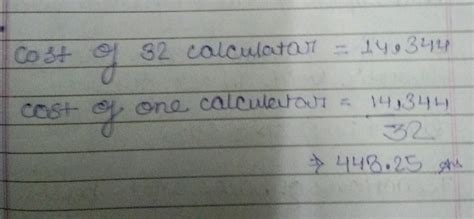 cost of 32 calculatar = 14,344
cost of one calculatar = 14,344
32
⇒ 448.25 Ans